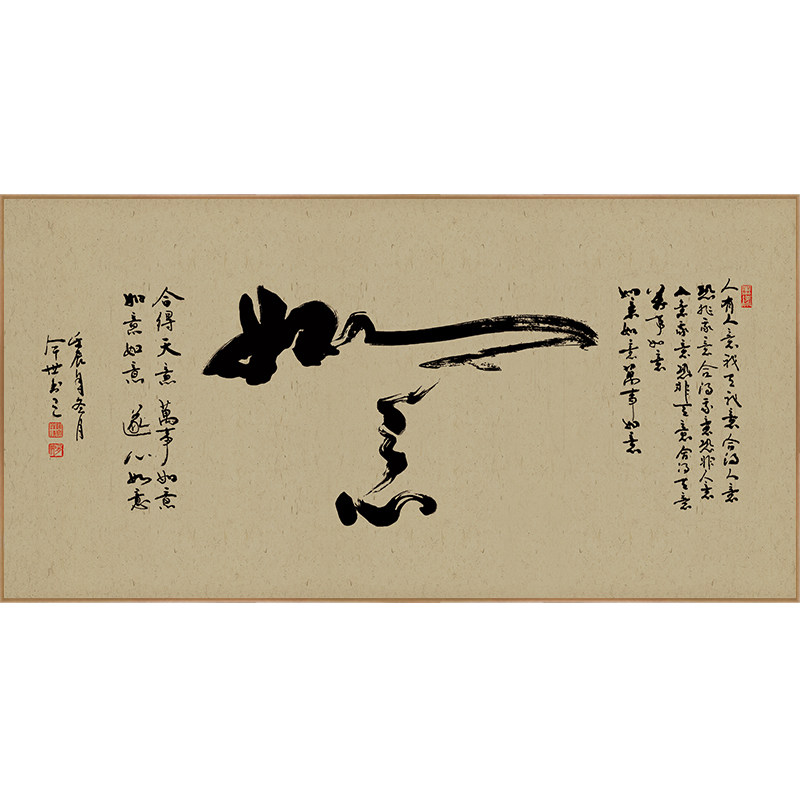 人有人意我有我意合得人意
恐非我意合得我意恐非人意
人意我意恐非天意合得天意
萬事如意
如意如意萬事如意
如意
合得天意萬事如意
如意如意遂心如意
壬辰年冬月